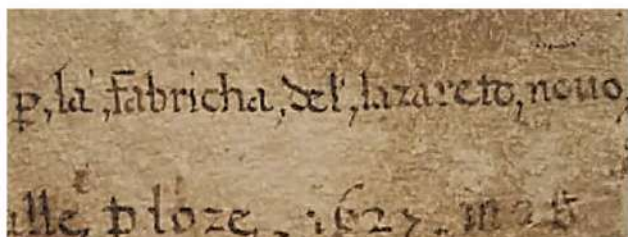 ꝑ, la, fabricha, del, lazareto, nouo,
alle, ꝑ loze, 1627, m